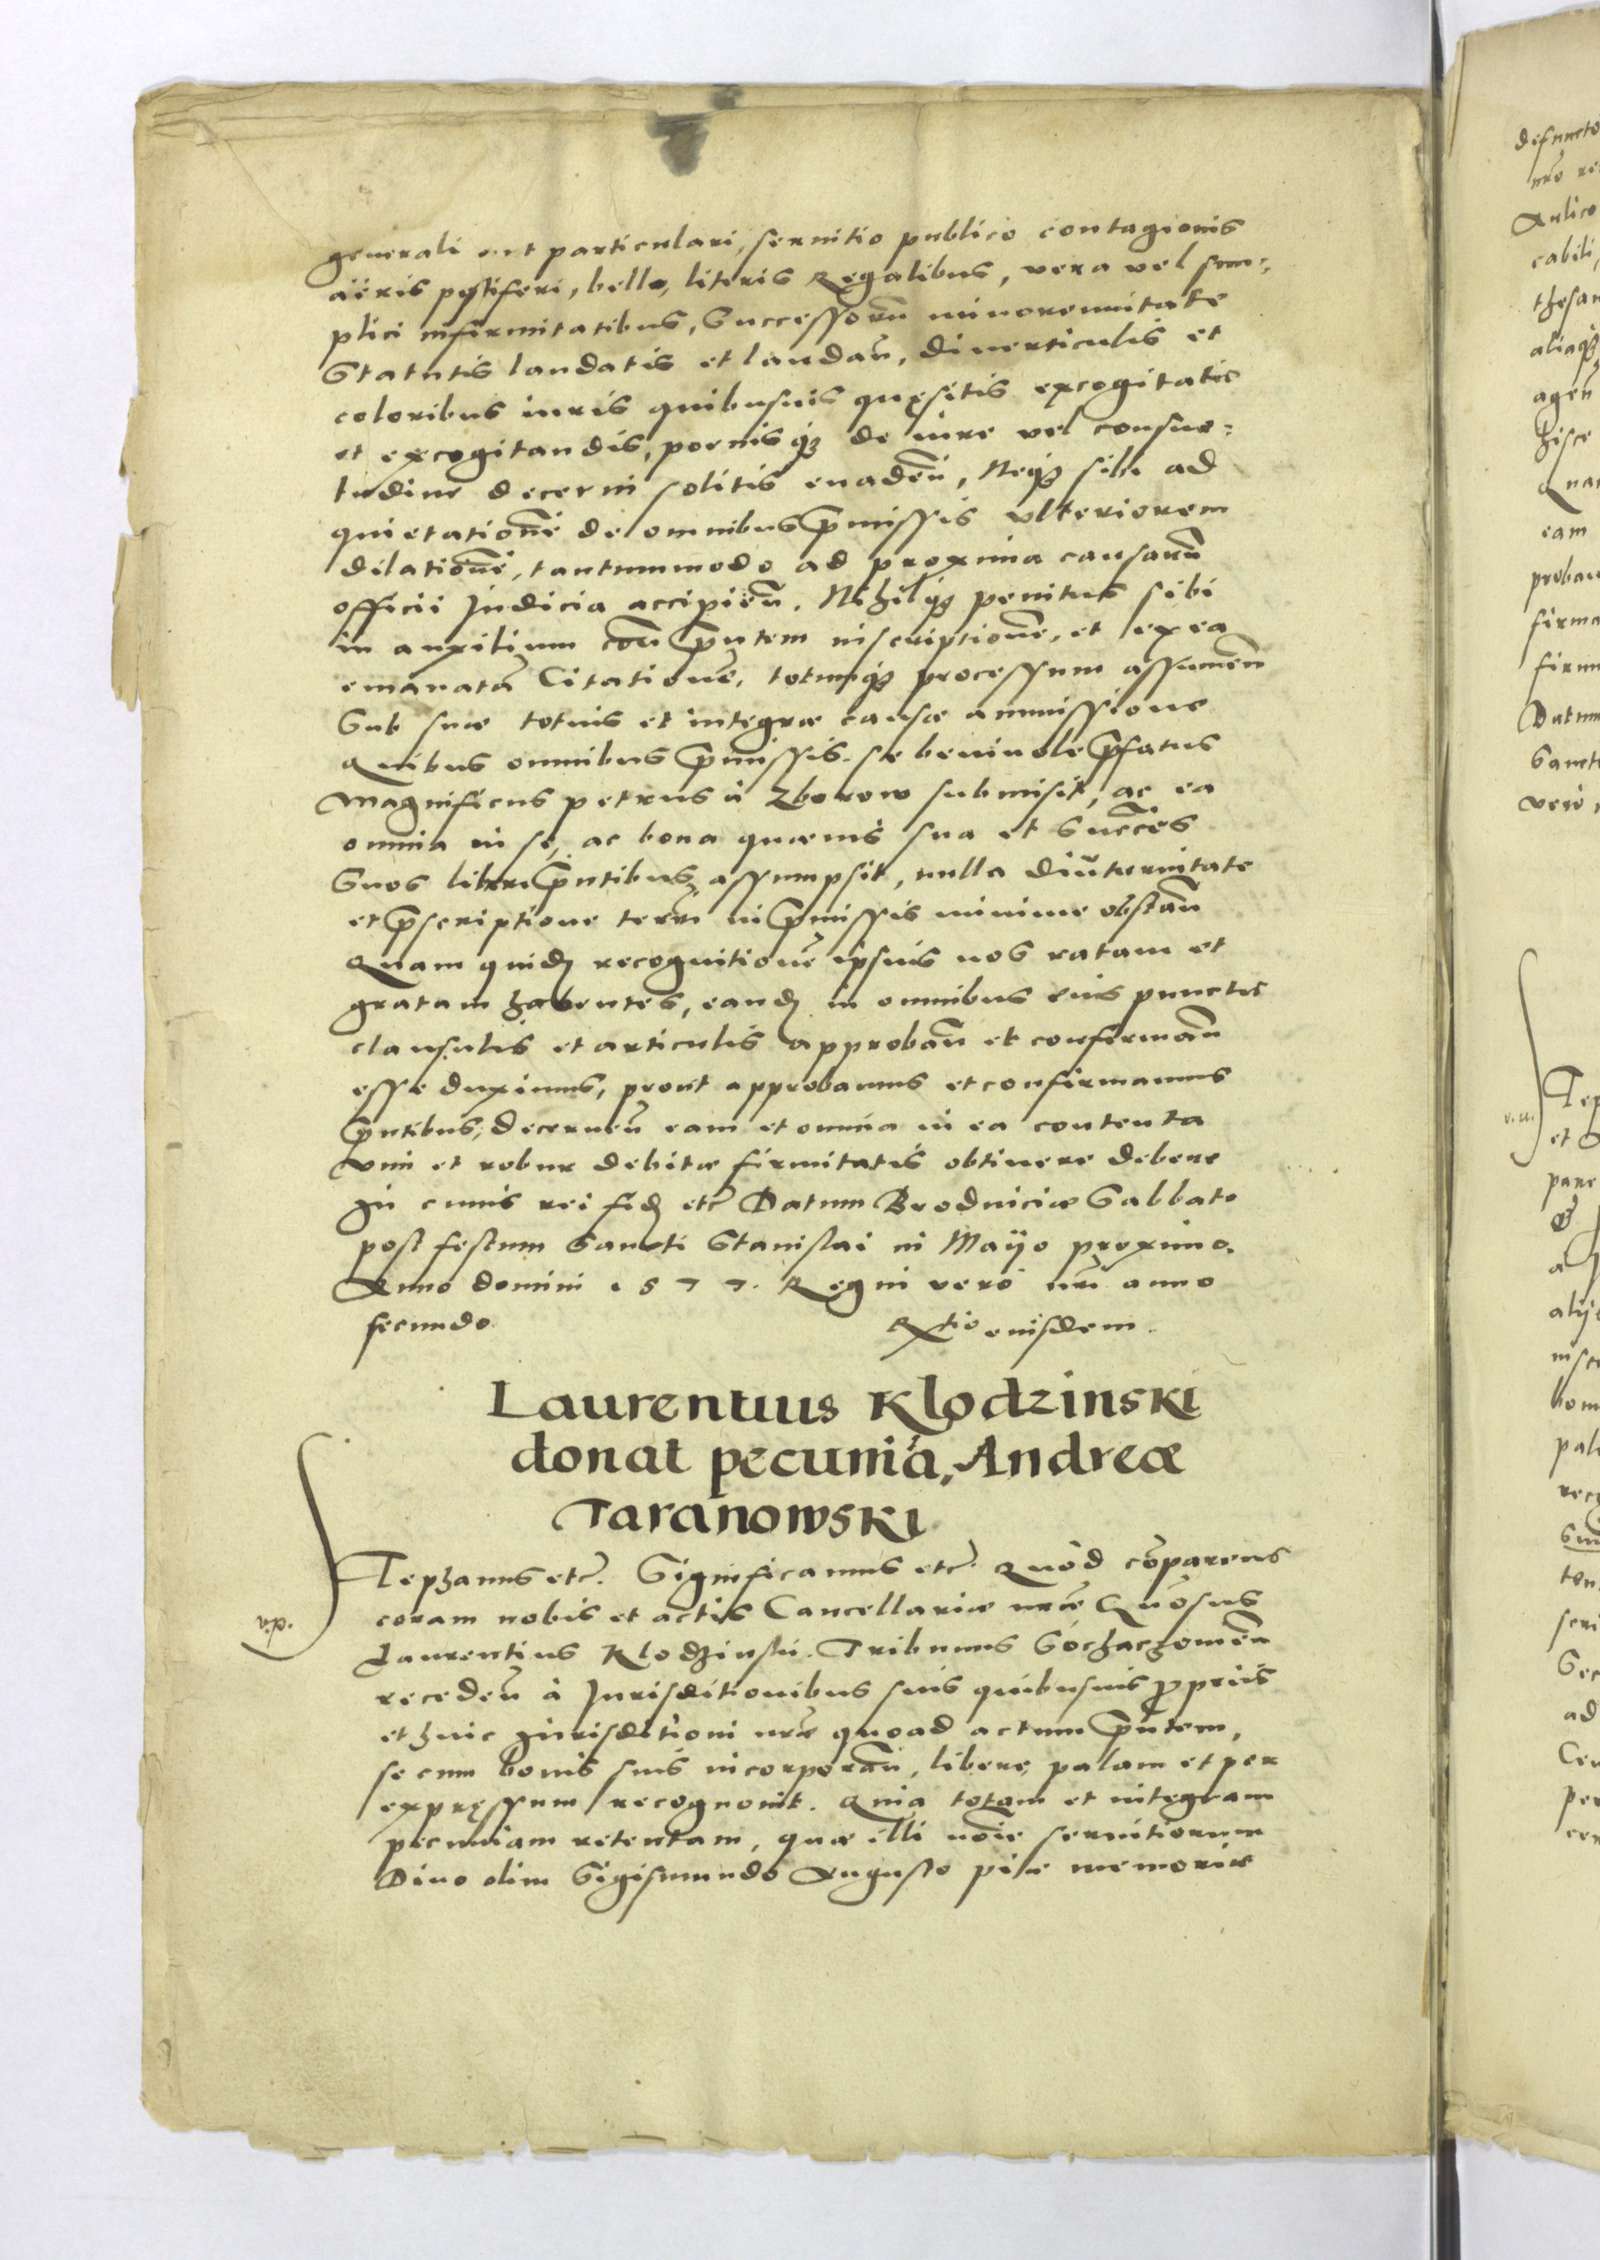 generali aut particulari, seruitio publico contagionis
aëris pestiferi, bello, literis Regalibus, vera vel sim-
plici infirmitatibus, Successorũ minorennitate
Statutis laudatis et laudañ, diuerticulis et
coloribus iuris quibusuis quęsitis excogitatis
et excogitandis, poenisq3 de iure vel consue-
tudine decerni solitis euadeñ, Neq3 sibi ad
quietationẽ de omnibus p̃missis vlteriorem
dilationẽ, tantummodo ad proxima causarũ
officii Judicia accipieñ. Nihilq3 penitus sibi
in auxilium coñ p̃ntem inscriptionẽ, et ex ea
emanatã Citationẽ, totumq3 processum assumeñ
Sub suæ totius et integræ causæ ammissione
Quibus omnibus p̃missis se beniuole p̃fatus
Magnificus petrus à Zborow submisit, ac ea
omnia in se, ac bona quæuis sua et Succes̃
Suos libere p̃ntibus assumpsit, nulla diuturnitate
et p̃scriptione terrñ in p̃missis minime obstañ
Quam quidẽ recognitionẽ ipsius nos ratam et
gratam habentes, eandẽ in omnibus eius punctis
clausulis et articulis approbañ et confirmañ
esse duximus, prout approbamus et confirmamus
p̃ntibus, decerneñ eam et omnia in ea contenta
vim et robur debitæ firmitatis obtinere debere
In cuius rei fidẽ etc̃ Datum Brodniciæ Sabbato
post festum Sancti Stanislai in Maijo proximo.
Anno domini 1577. Regni vero nr̃i anno
secundo. Rtio eiusdem.
Laurentius Klodzinski
donat pecuniã, Andreæ
Taranowski
STephanus etc̃. Significamus etc̃. Quòd cõparens
coram nobis et actis Cancellariæ nr̃æ G̃uosus
Laurentius Klodzinski. Tribunus Sochaczouieñ
recedeñ à Jurisditionibus suis quibusuis p̱priis
et huic Jurisditioni nr̃æ quoad actum p̃ntem,
se cum bonis suis incorporañ, libere, palam et per
expręssum recognouit. Quia totam et integram
pecuniam retentam, quæ illi noĩe seruitiorum
Diuo olim Sigismundo Augusto piæ memoriæ